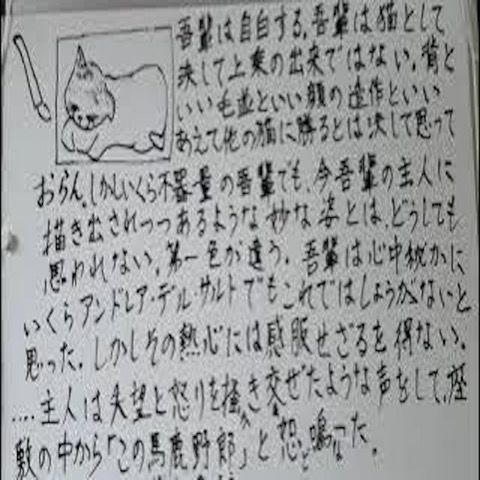 吾輩は自白する。吾輩は猫として
決して上乗の出来ではない。背と
いい毛並といい顔の造作といい
あえて他の猫に勝るとは決して思って
おらん。しかしいくら不器量の吾輩でも、今吾輩の主人に
描き出されつつあるような妙な姿とは、どうしても
思われない。第一色が違う。吾輩は心中秘かに
いくらアンドレア・デル・サルトでもこれではしょうがないと
思った。しかしその熱心には感服せざるを得ない。
....主人は失望と怒りを掻き交ぜたような声をして、座
敷の中から「この馬鹿野郎」と怒鳴った。